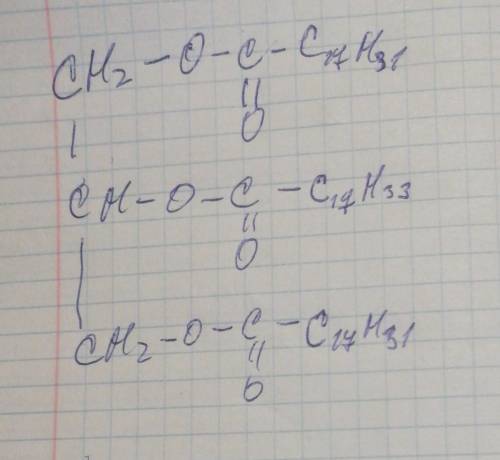 CH₂ - O - C - C₁₇H₃₁
||
O
|
CH - O - C - C₁₇H₃₃
||
O
|
CH₂ - O - C - C₁₇H₃₁
||
O